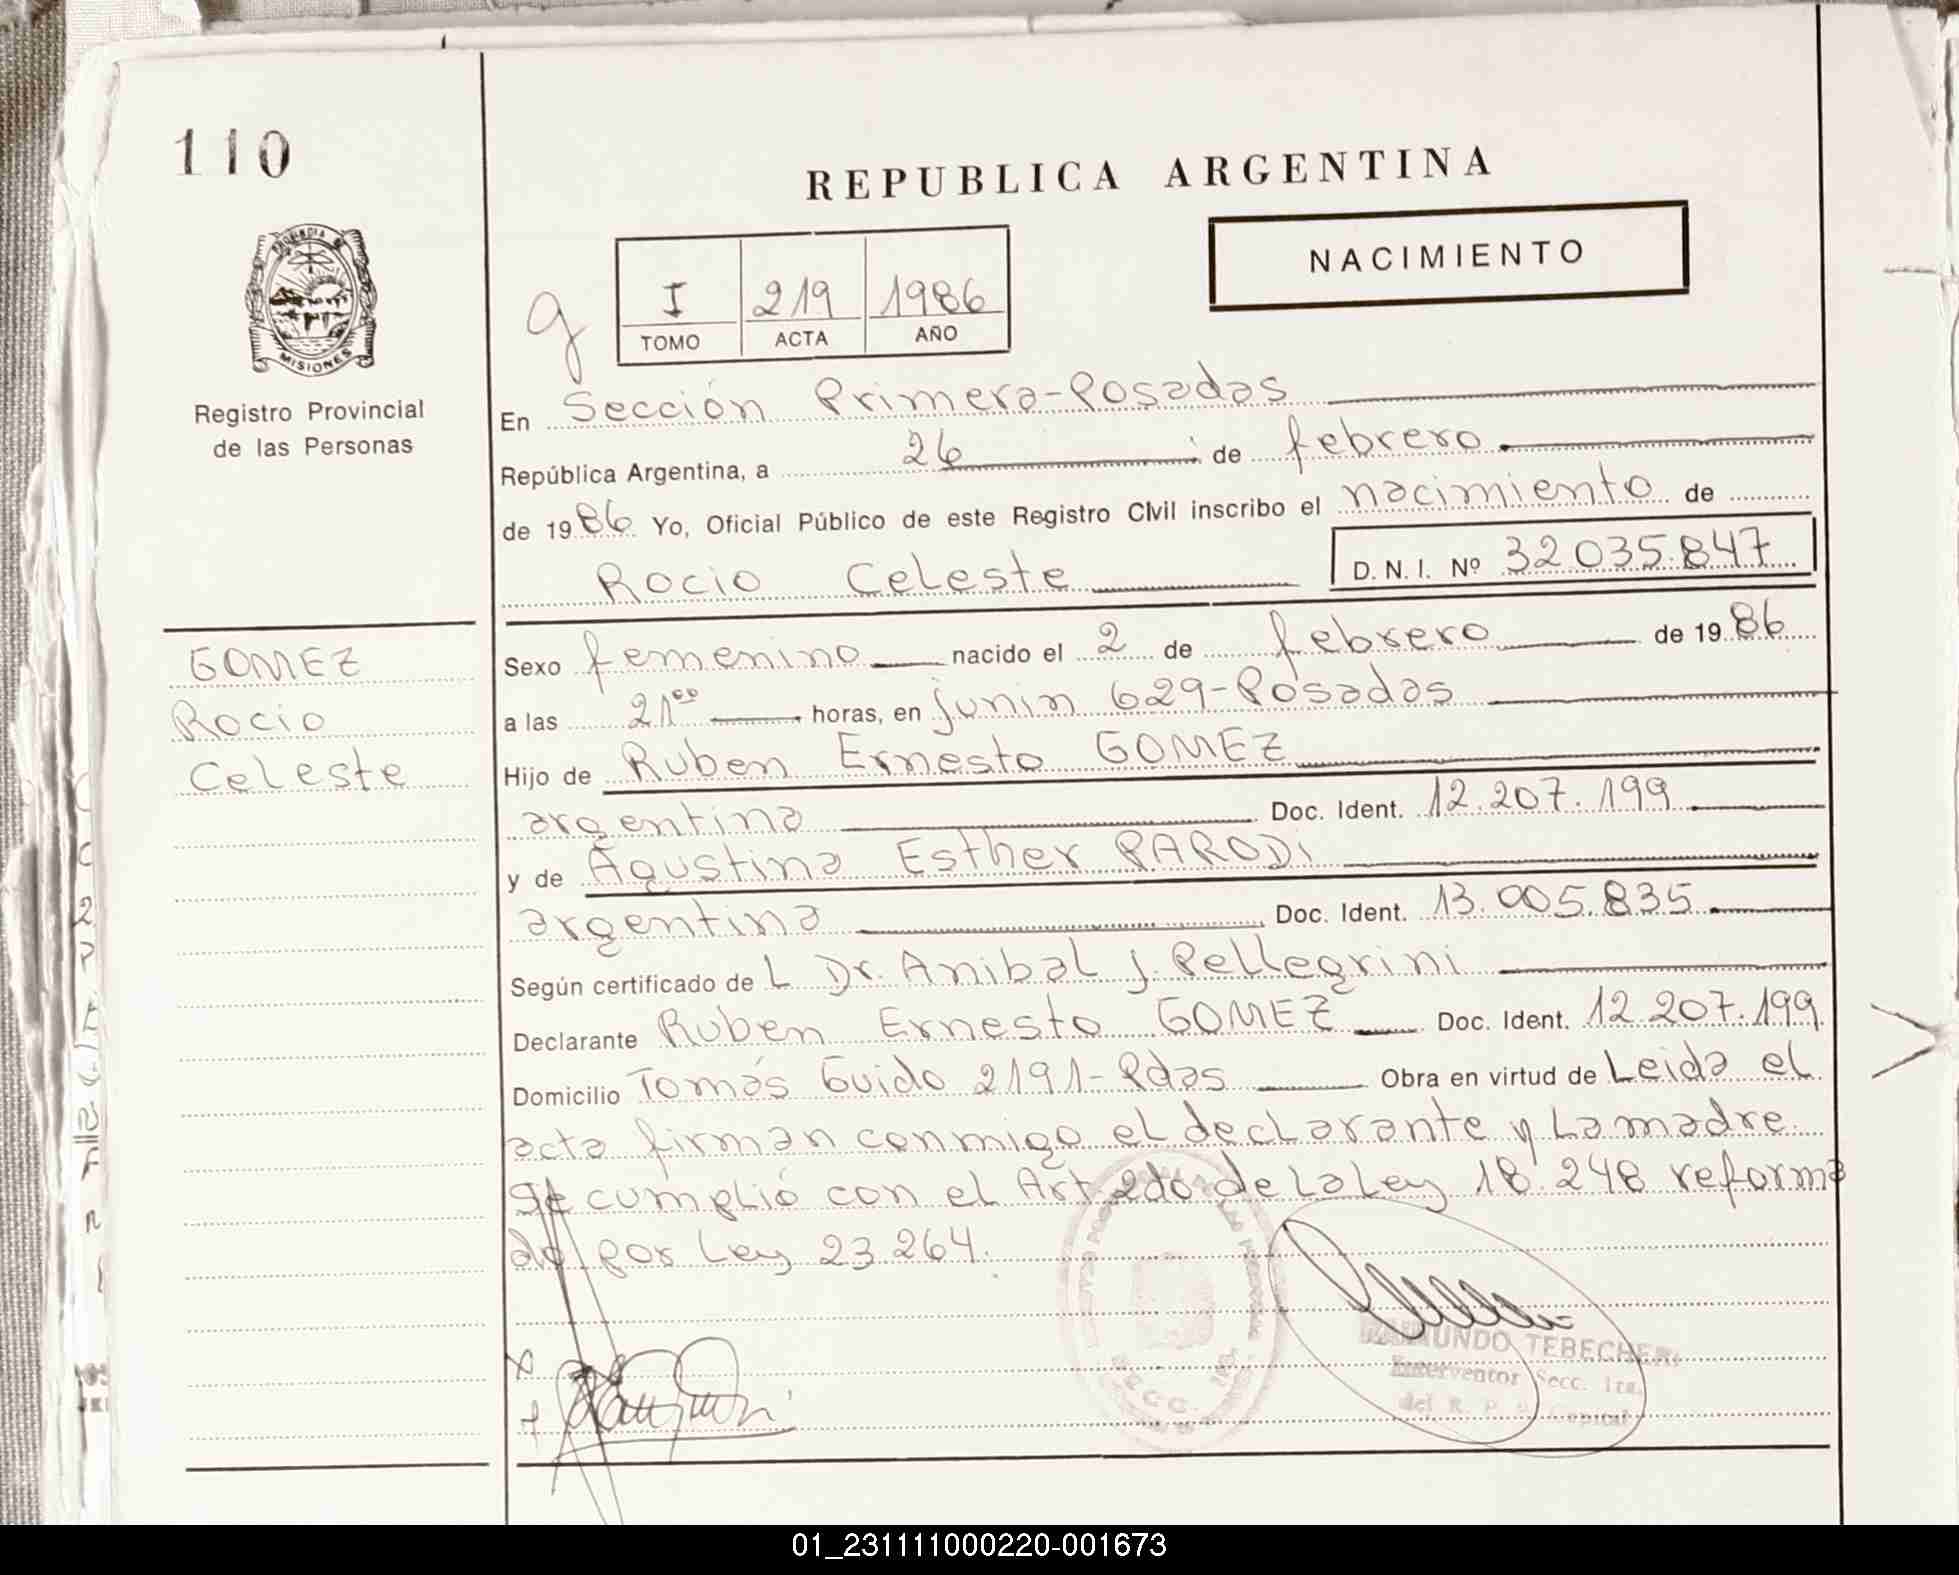 110
REPUBLICA ARGENTINA
NACIMIENTO
g
I 219 1986
TOMO ACTA AÑO
PROVINCIA DE
MISIONES
Registro Provincial
de las Personas
GOMEZ
Rocio
Celeste
En Sección Primera-Posadas
República Argentina, a 26 de febrero
de 1986 Yo, Oficial Público de este Registro Civil inscribo el nacimiento de
Rocio Celeste D. N. I. Nº 32 035.847
Sexo femenino nacido el 2 de febrero de 1986
a las 21⁰⁰ horas, en junin 629-Posadas
Hijo de Ruben Ernesto GOMEZ
argentina Doc. Ident. 12.207.199
y de Agustina Esther PARODi
argentina Doc. Ident. 13.005.835
Según certificado de L Dr. Anibal J. Pellegrini
Declarante Ruben Ernesto GOMEZ Doc. Ident. 12 207.199
Domicilio Tomás Guido 2191-Pdas Obra en virtud de Leida el
acta firman conmigo el declarante y La madre
se cumplió con el Art 2do de La Ley 18.248 reforma
do por Ley 23.264.
RAIMUNDO TEBECHERI
Interventor Secc. 1ra.
del R. P. P. Capital
01_231111000220-001673